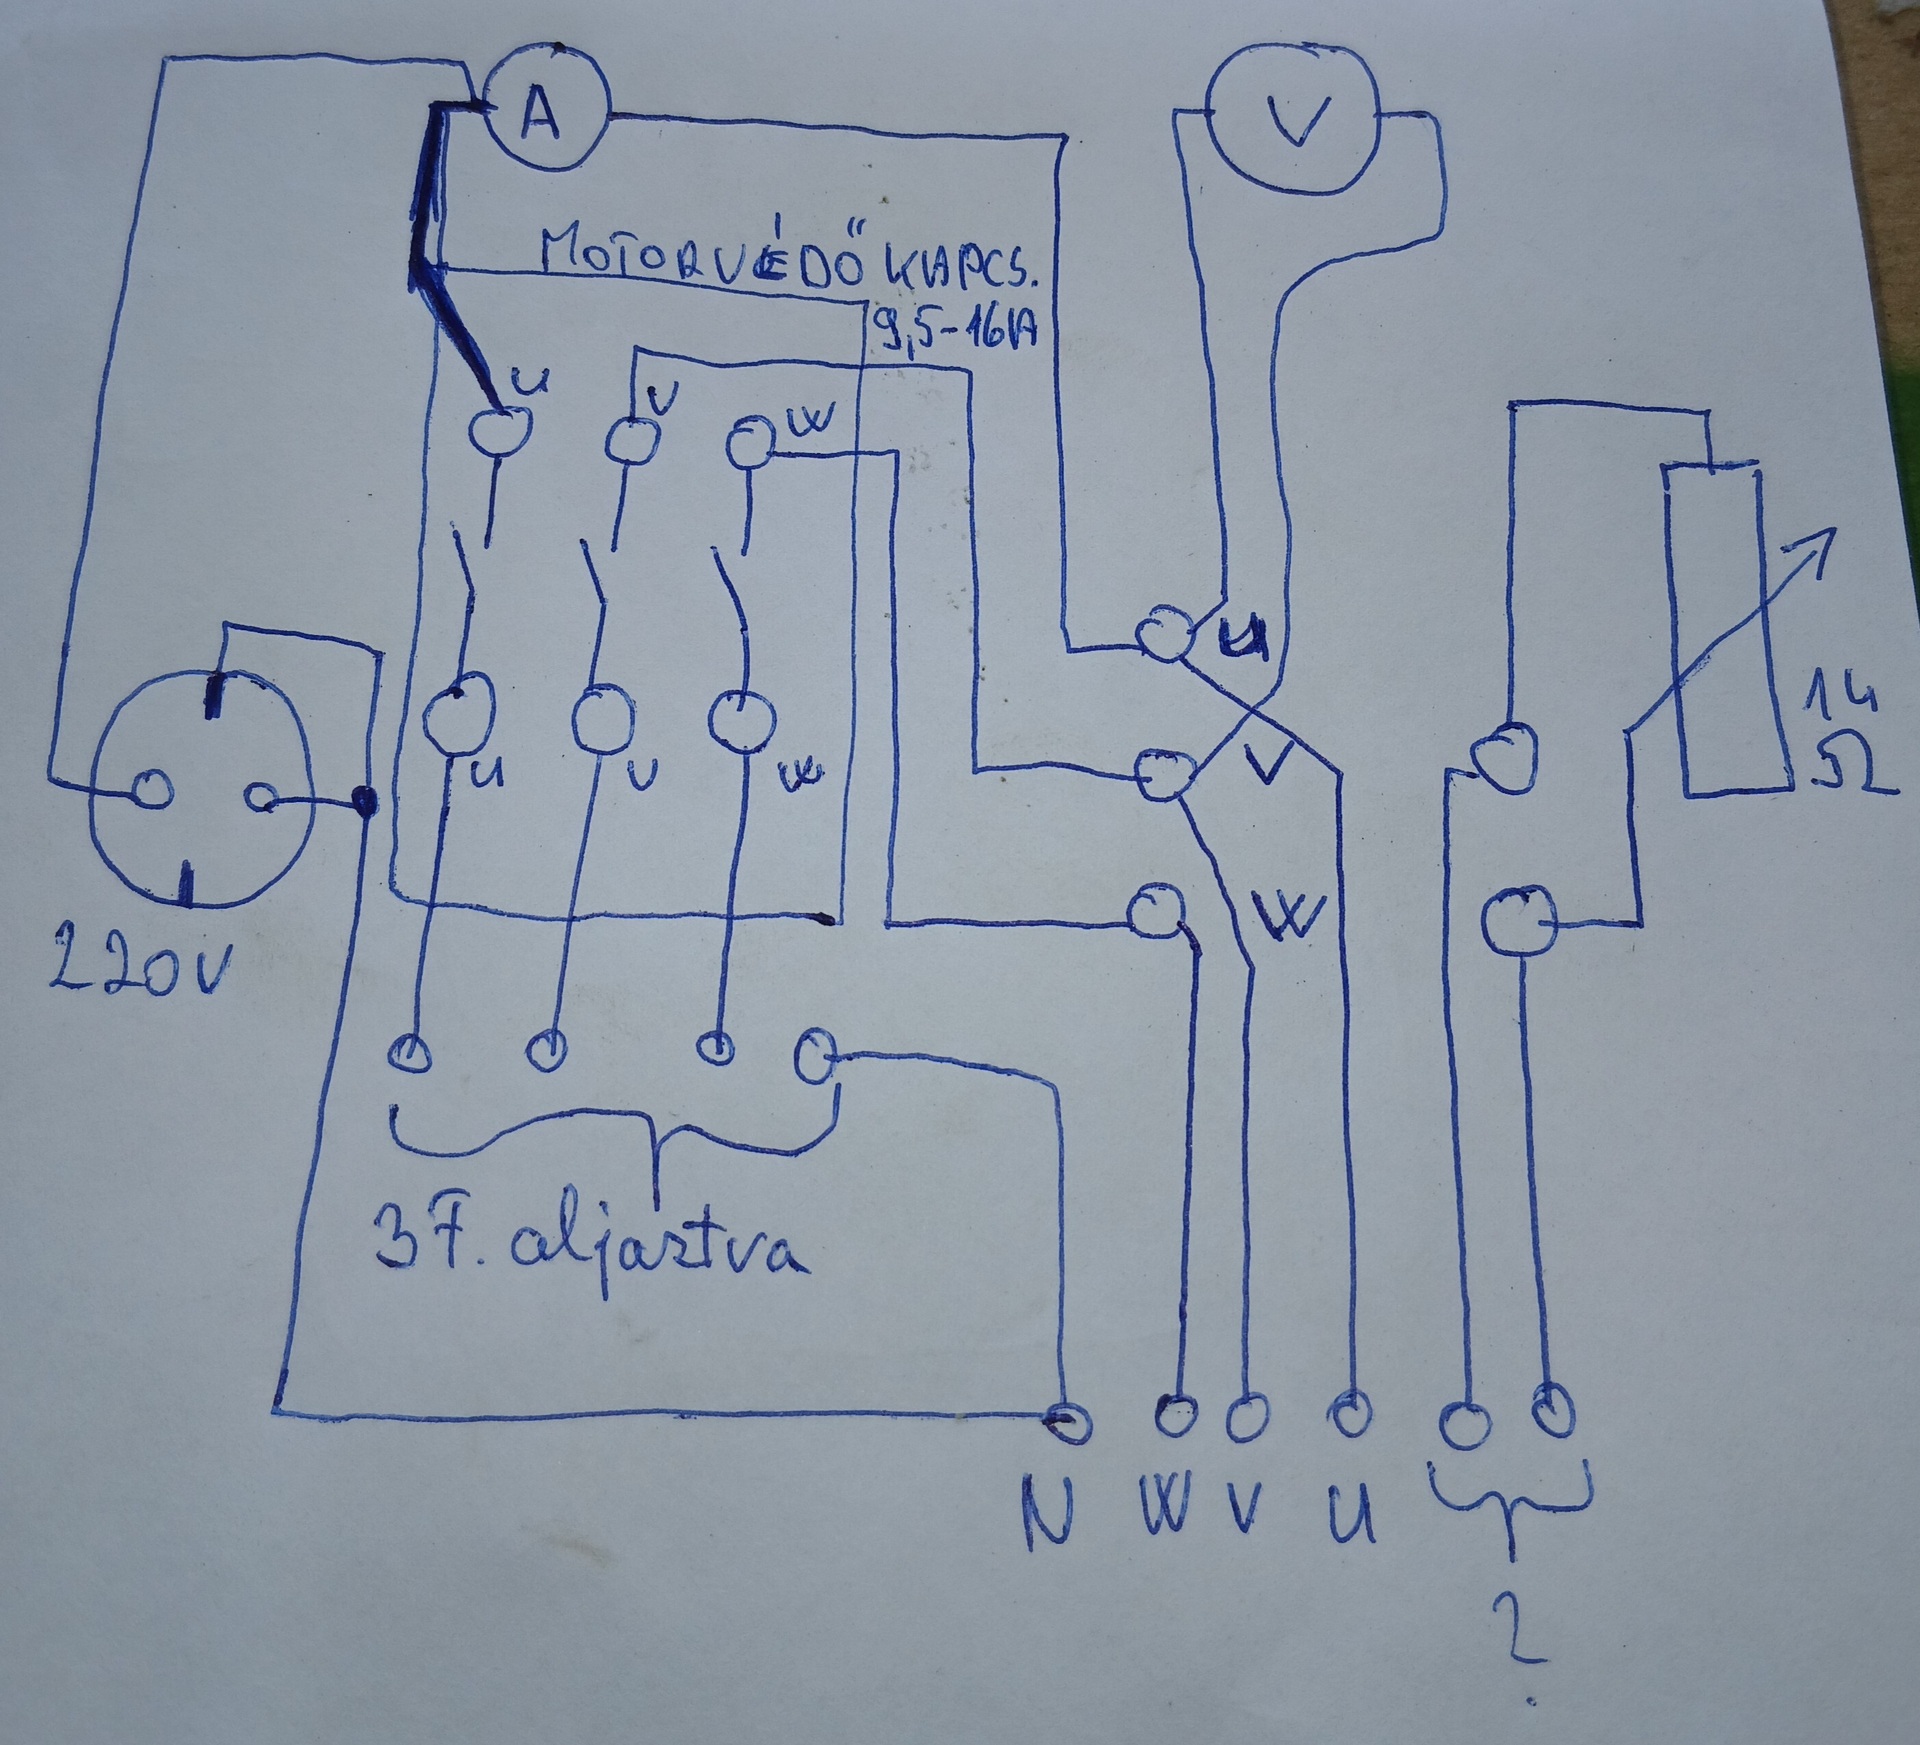 A
V
MOTORVÉDŐ KAPCS.
9,5-16A
U
V
W
U
V
W
U
V
W
14
Ω
220V
3F. aljaztva
N W V U
?